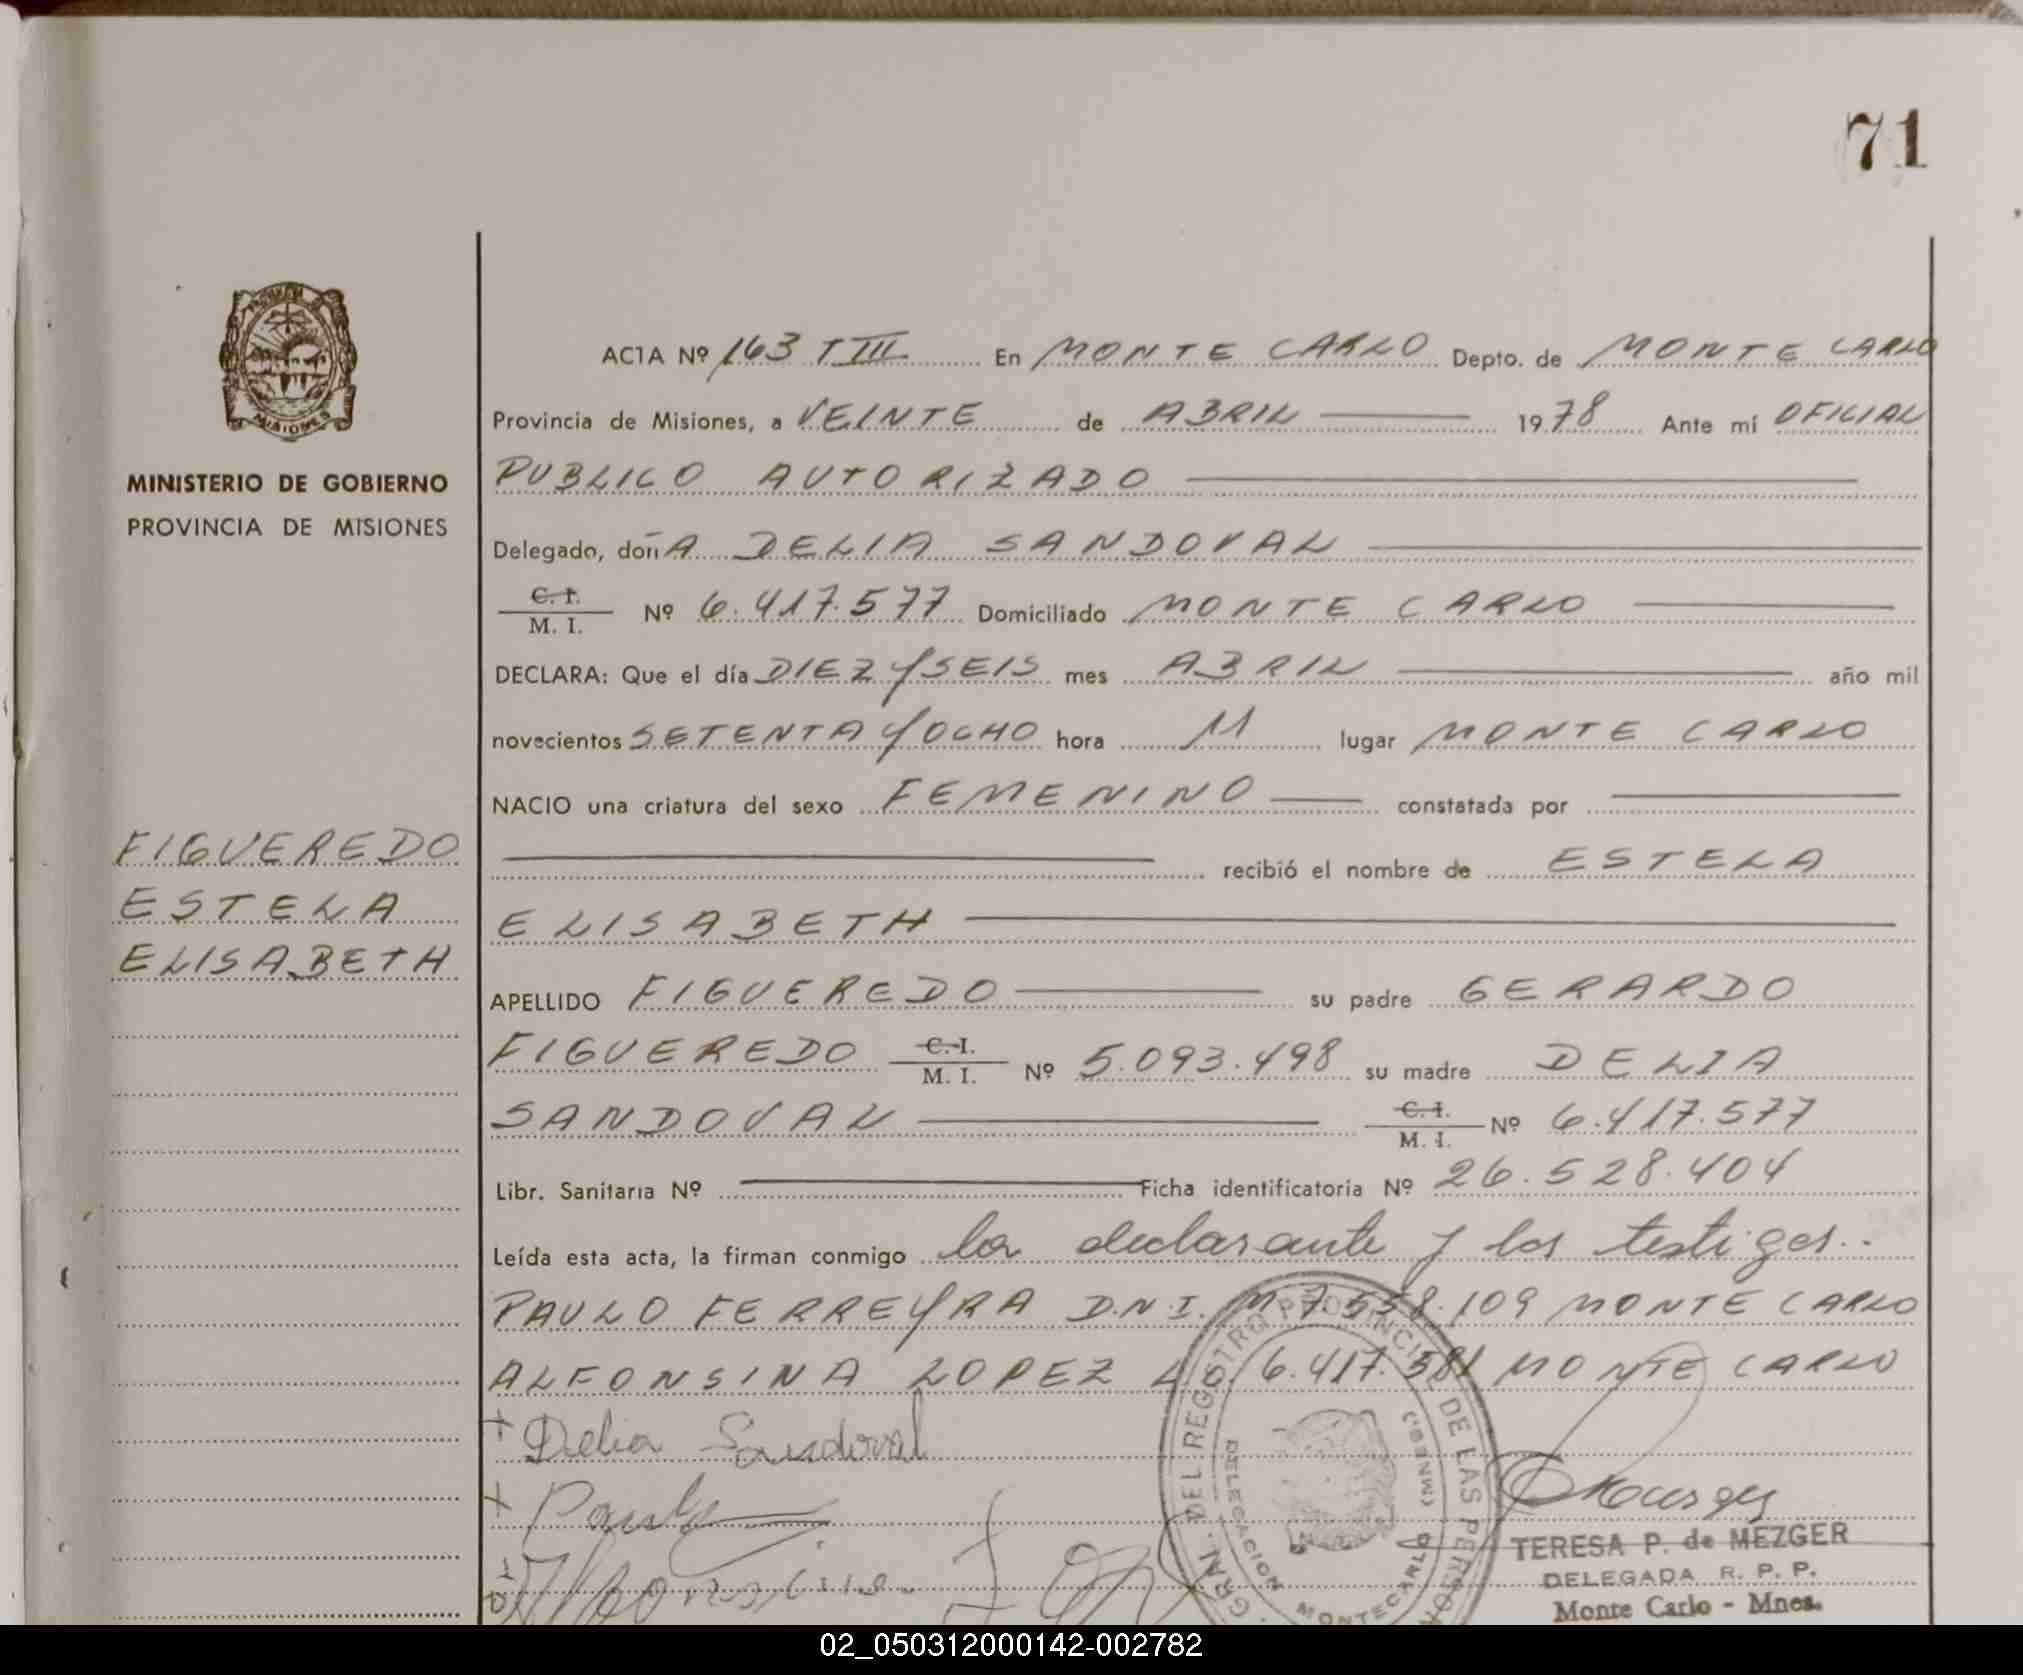 71
PROVINCIA
MISIONES
MINISTERIO DE GOBIERNO
PROVINCIA DE MISIONES
FIGUEREDO
ESTELA
ELISABETH
ACTA Nº 163 T III En MONTE CARLO Depto. de MONTE CARLO
Provincia de Misiones, a VEINTE de ABRIL 1978 Ante mí OFICIAL
PUBLICO AUTORIZADO
Delegado, doñA DELIA SANDOVAL
C. I.
M. I. Nº 6.417.577 Domiciliado MONTE CARLO
DECLARA: Que el día DIEZ Y SEIS mes ABRIL año mil
novecientos SETENTA Y OCHO hora 11 lugar MONTE CARLO
NACIO una criatura del sexo FEMENINO constatada por
recibió el nombre de ESTELA
ELISABETH
APELLIDO FIGUEREDO su padre GERARDO
FIGUEREDO C. I. M. I. Nº 5.093.498 su madre DELIA
SANDOVAL C. I. M. I. Nº 6.417.577
Libr. Sanitaria Nº Ficha identificatoria Nº 26.528.404
Leída esta acta, la firman conmigo la declarante y los testigos..
PAULO FERREYRA D.N.I. M 7.558.109 MONTE CARLO
ALFONSINA LOPEZ L.C. 6.417.581 MONTE CARLO
Delia Sandoval
GRAL. DEL REGISTRO PROVINCIAL DE LAS PERSON
DELEGACION MONTECARLO (MNES.)
TERESA P. de MEZGER
DELEGADA R. P. P.
Monte Carlo - Mnes.
02_050312000142-002782